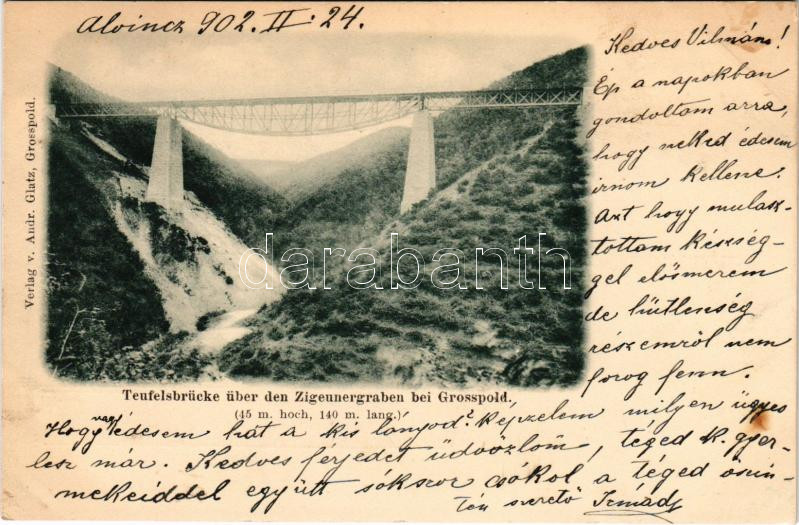 Alvincz 902. II : 24.
Verlag v. Andr. Glatz, Grosspold.
Kedves Vilmám!
Ép a napokban
gondoltam arra,
hogy neked édesem
irnom kellene.
Azt hogy mulasz-
tottam készség-
gel elösmerem
de hütlenség
részemről nem
forog fenn.
darabanth
Teufelsbrücke über den Zigeunergraben bei Grosspold.
(45 m. hoch, 140 m. lang.)
Hogy vagy édesem hát a kis lányod? Képzelem milyen ügyes
lesz már. Kedves férjedet üdvözlöm, téged k. gyer-
mekeiddel együtt sokszor csókol a téged öszin-
tén szerető Irmád